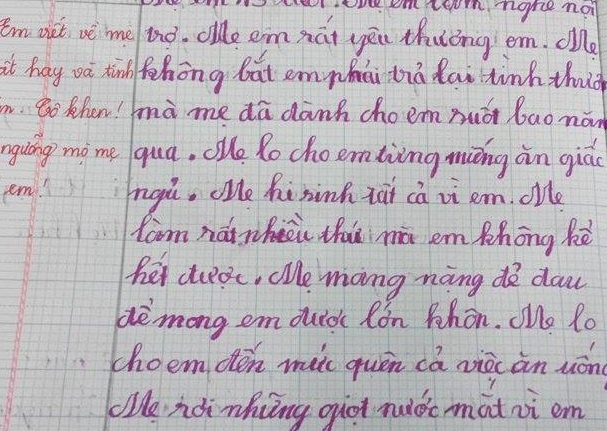 em nghe nói
trợ. Mẹ em rất yêu thương em. Mẹ
không bắt em phải trả lại tình thươ
mà mẹ đã dành cho em suốt bao năm
qua. Mẹ lo cho em từng miếng ăn giấc
ngủ. Mẹ hi sinh tất cả vì em. Mẹ
làm rất nhiều thứ mà em không kể
hết được. Mẹ mang nặng đẻ đau
để mong em được lớn khôn. Mẹ lo
cho em đến mức quên cả việc ăn uống
Mẹ rơi những giọt nước mắt vì em
Em viết về mẹ
ất hay và tình
m. Cô khen!
ngưỡng mộ mẹ
em!